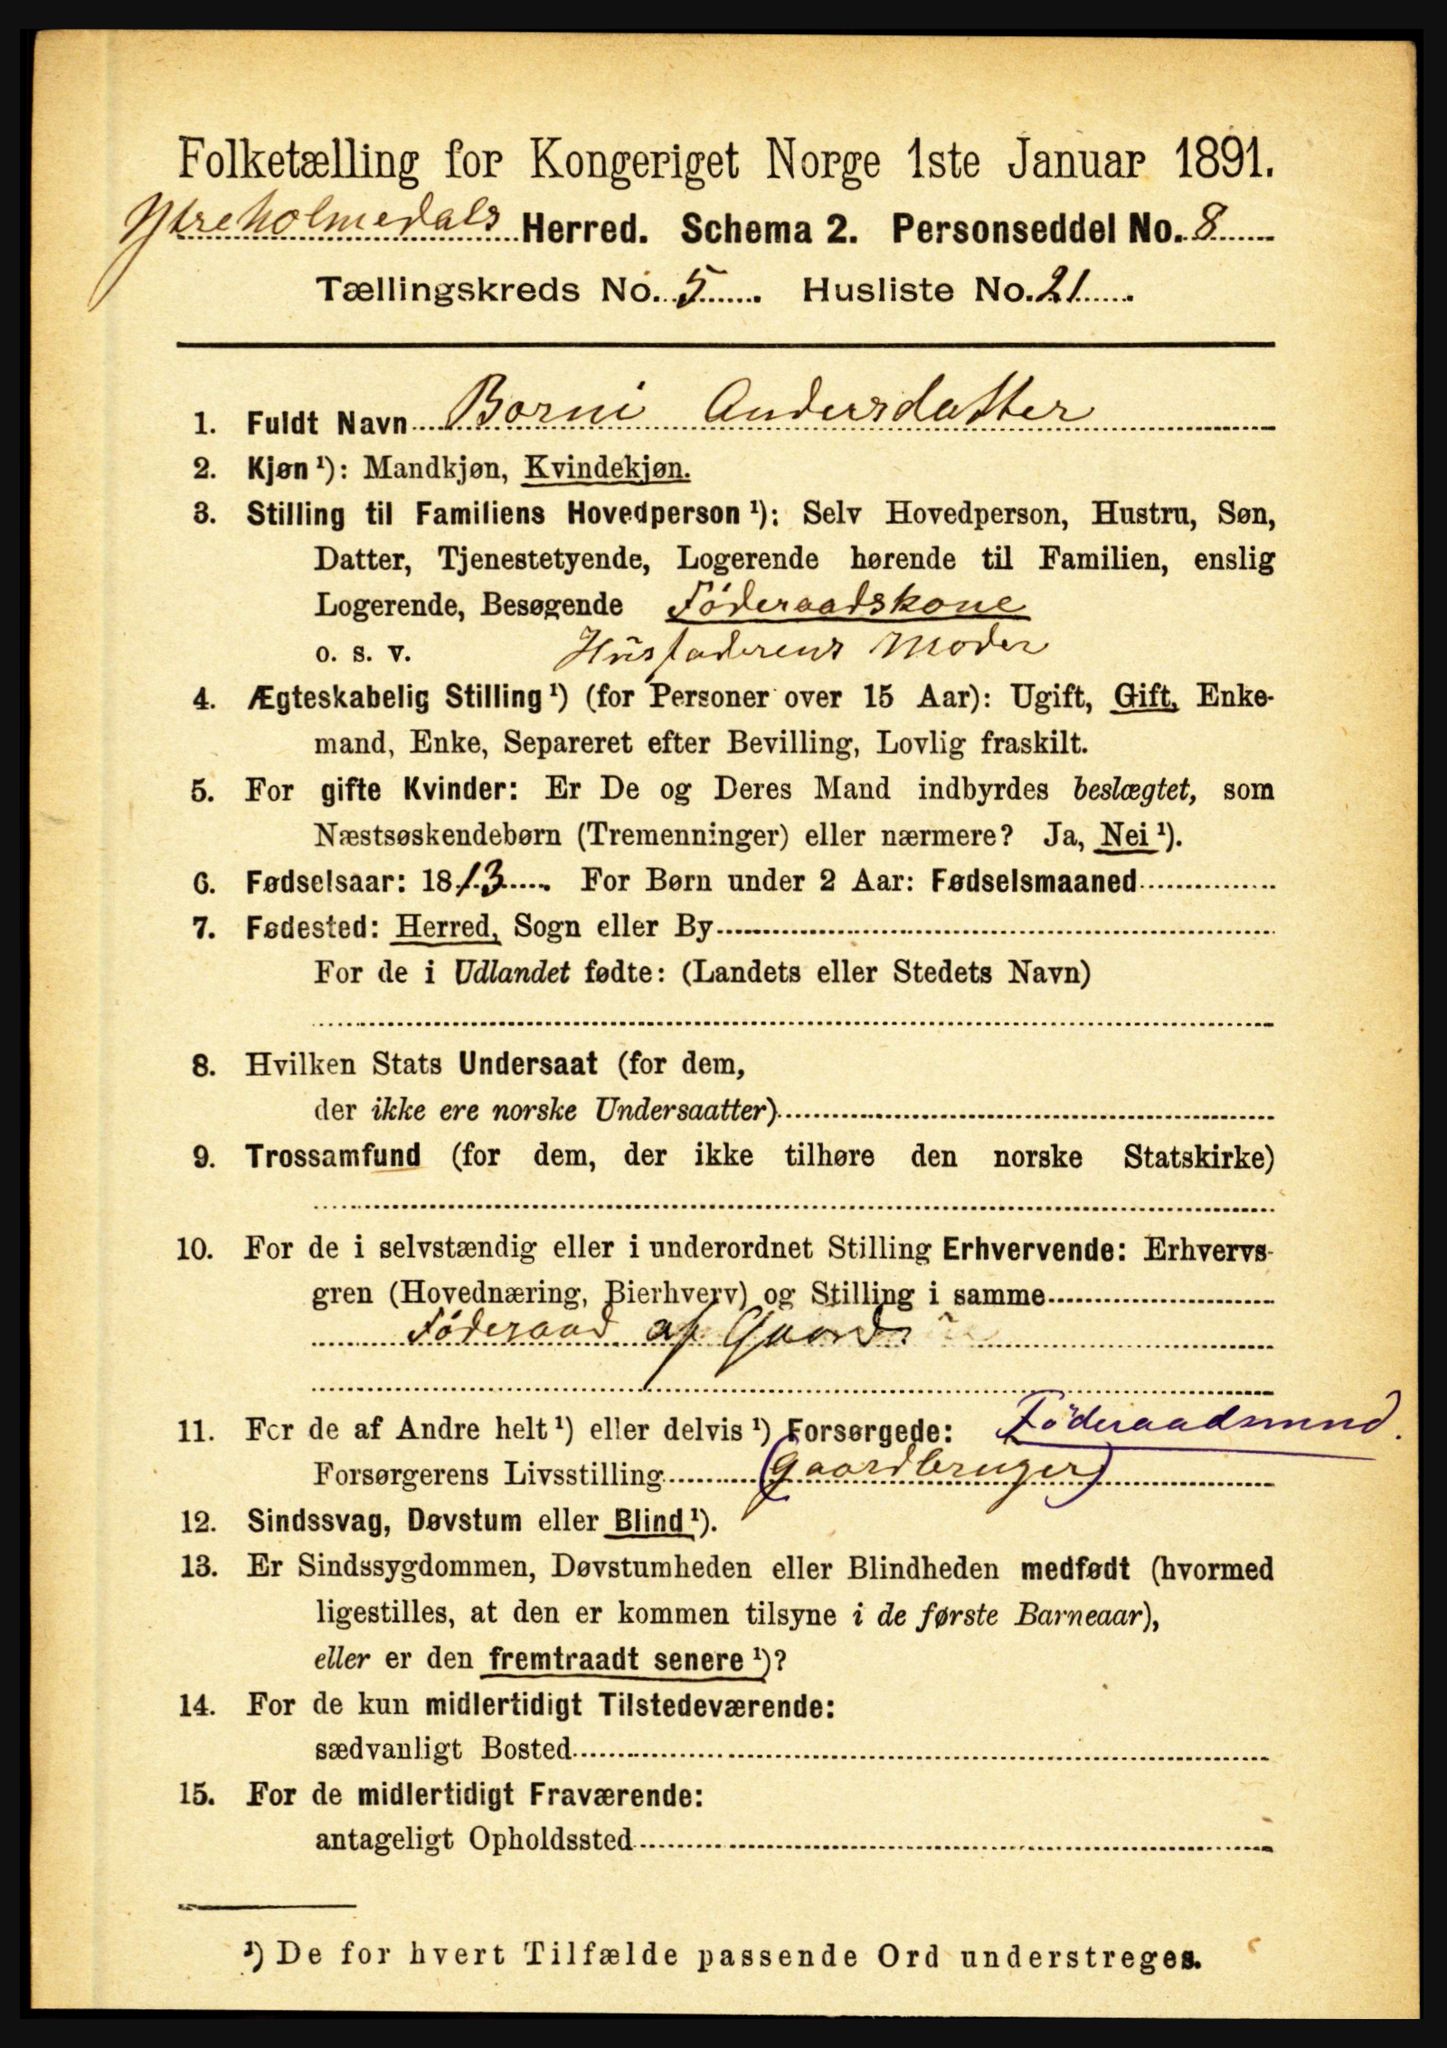 Folketælling for Kongeriget Norge 1ste Januar 1891.
Ytreholmedals Herred. Schema 2. Personseddel No. 8
Tællingskreds No. 5. Husliste No. 21.
1. Fuldt Navn Borni Andersdatter
2. Kjøn ¹): Mandkjøn, Kvindekjøn.
3. Stilling til Familiens Hovedperson ¹): Selv Hovedperson, Hustru, Søn,
Datter, Tjenestetyende, Logerende hørende til Familien, enslig
Logerende, Besøgende Føderaadskone
o. s. v. Husfaderens Moder
4. Ægteskabelig Stilling ¹) (for Personer over 15 Aar): Ugift, Gift, Enke-
mand, Enke, Separeret efter Bevilling, Lovlig fraskilt.
5. For gifte Kvinder: Er De og Deres Mand indbyrdes beslægtet, som
Næstsøskendebørn (Tremenninger) eller nærmere? Ja, Nei ¹).
6. Fødselsaar: 1813. For Børn under 2 Aar: Fødselsmaaned
7. Fødested: Herred, Sogn eller By
For de i Udlandet fødte: (Landets eller Stedets Navn)
8. Hvilken Stats Undersaat (for dem,
der ikke ere norske Undersaatter)
9. Trossamfund (for dem, der ikke tilhøre den norske Statskirke)
10. For de i selvstændig eller i underordnet Stilling Erhvervende: Erhvervs-
gren (Hovednæring, Bierhverv) og Stilling i samme
Føderaad af
11. For de af Andre helt ¹) eller delvis ¹) Forsørgede: Føderaadsmnd.
Forsørgerens Livsstilling (Gaardbruger)
12. Sindssvag, Døvstum eller Blind ¹).
13. Er Sindssygdommen, Døvstumheden eller Blindheden medfødt (hvormed
ligestilles, at den er kommen tilsyne i de første Barneaar),
eller er den fremtraadt senere ¹)?
14. For de kun midlertidigt Tilstedeværende:
sædvanligt Bosted
15. For de midlertidigt Fraværende:
antageligt Opholdssted
¹) De for hvert Tilfælde passende Ord understreges.